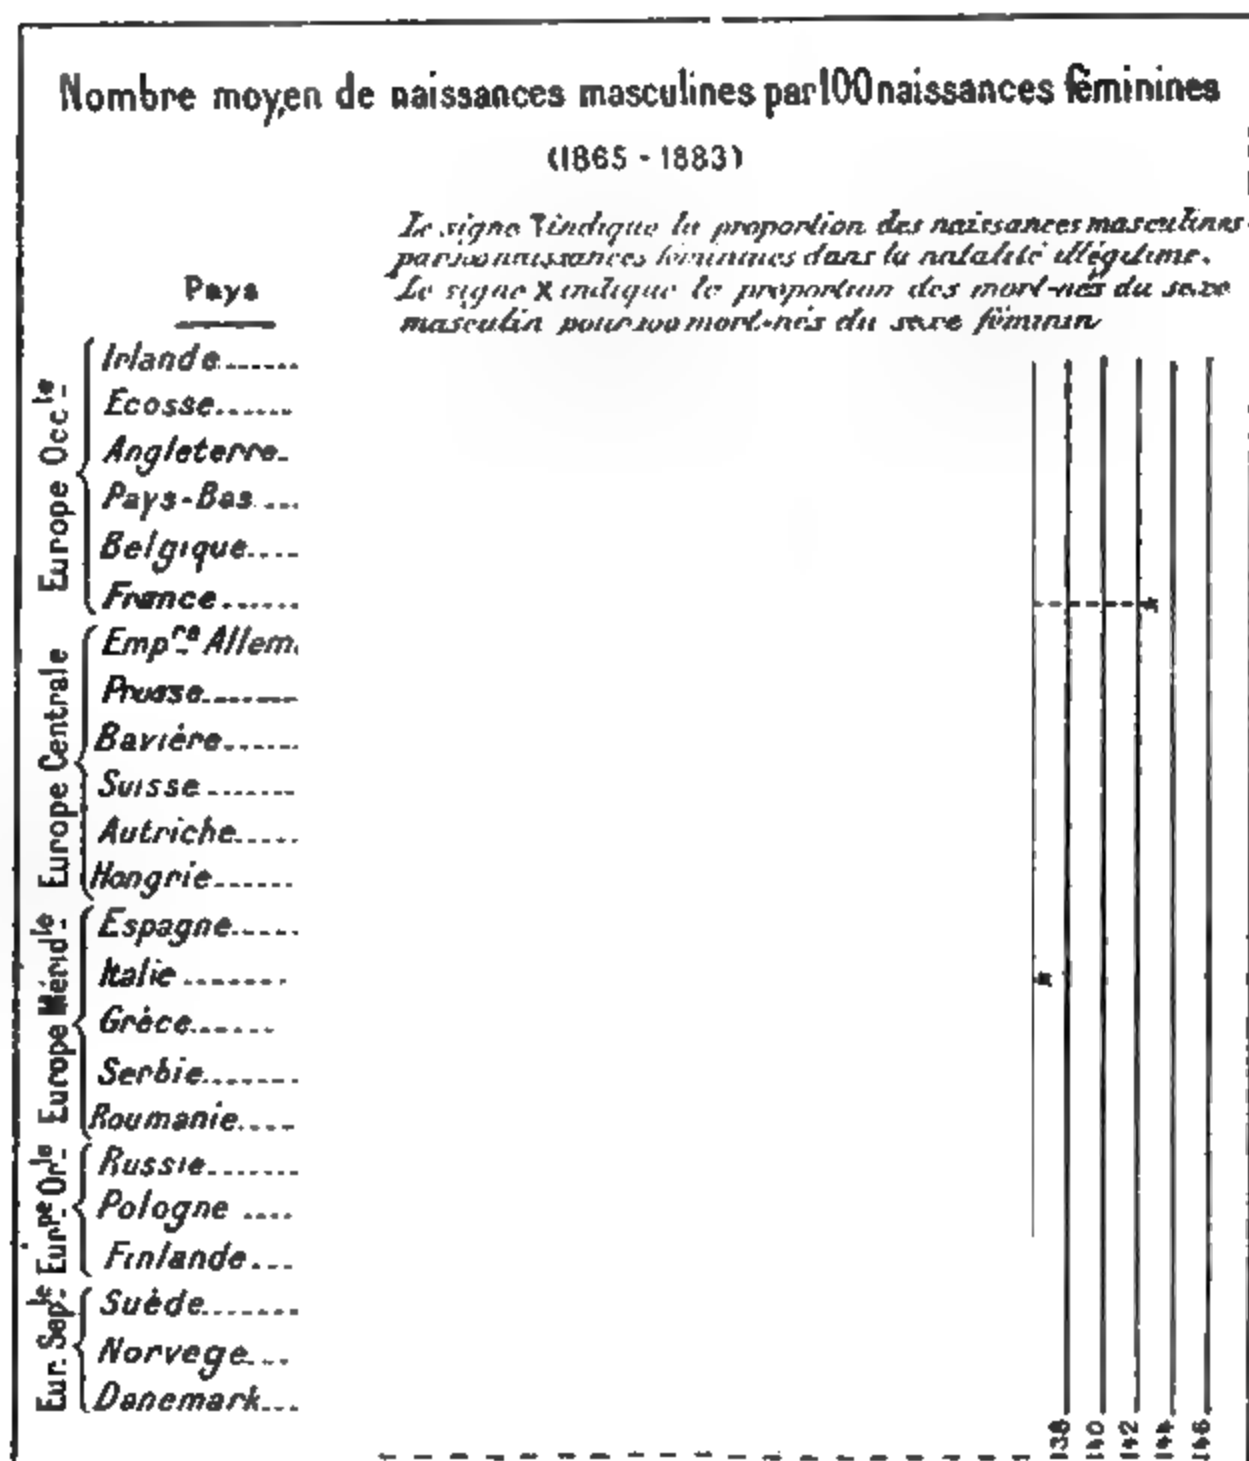 Nombre moyen de naissances masculines par 100 naissances féminines
(1865 - 1883)
Le signe indique la proportion des naissances masculines
par 100 naissances féminines dans la natalité illégitime.
Le signe X indique la proportion des mort-nés du sexe
masculin pour 100 mort-nés du sexe féminin
Pays
Europe Occle
Irlande
Ecosse
Angleterre
Pays-Bas
Belgique
France
Europe Centrale
Empre Allem.
Prusse
Bavière
Suisse
Autriche
Hongrie
Europe Méridle
Espagne
Italie
Grèce
Serbie
Roumanie
Eurpe Orle
Russie
Pologne
Finlande
Eur. Seple
Suède
Norvege
Danemark
138
140
142
144
146